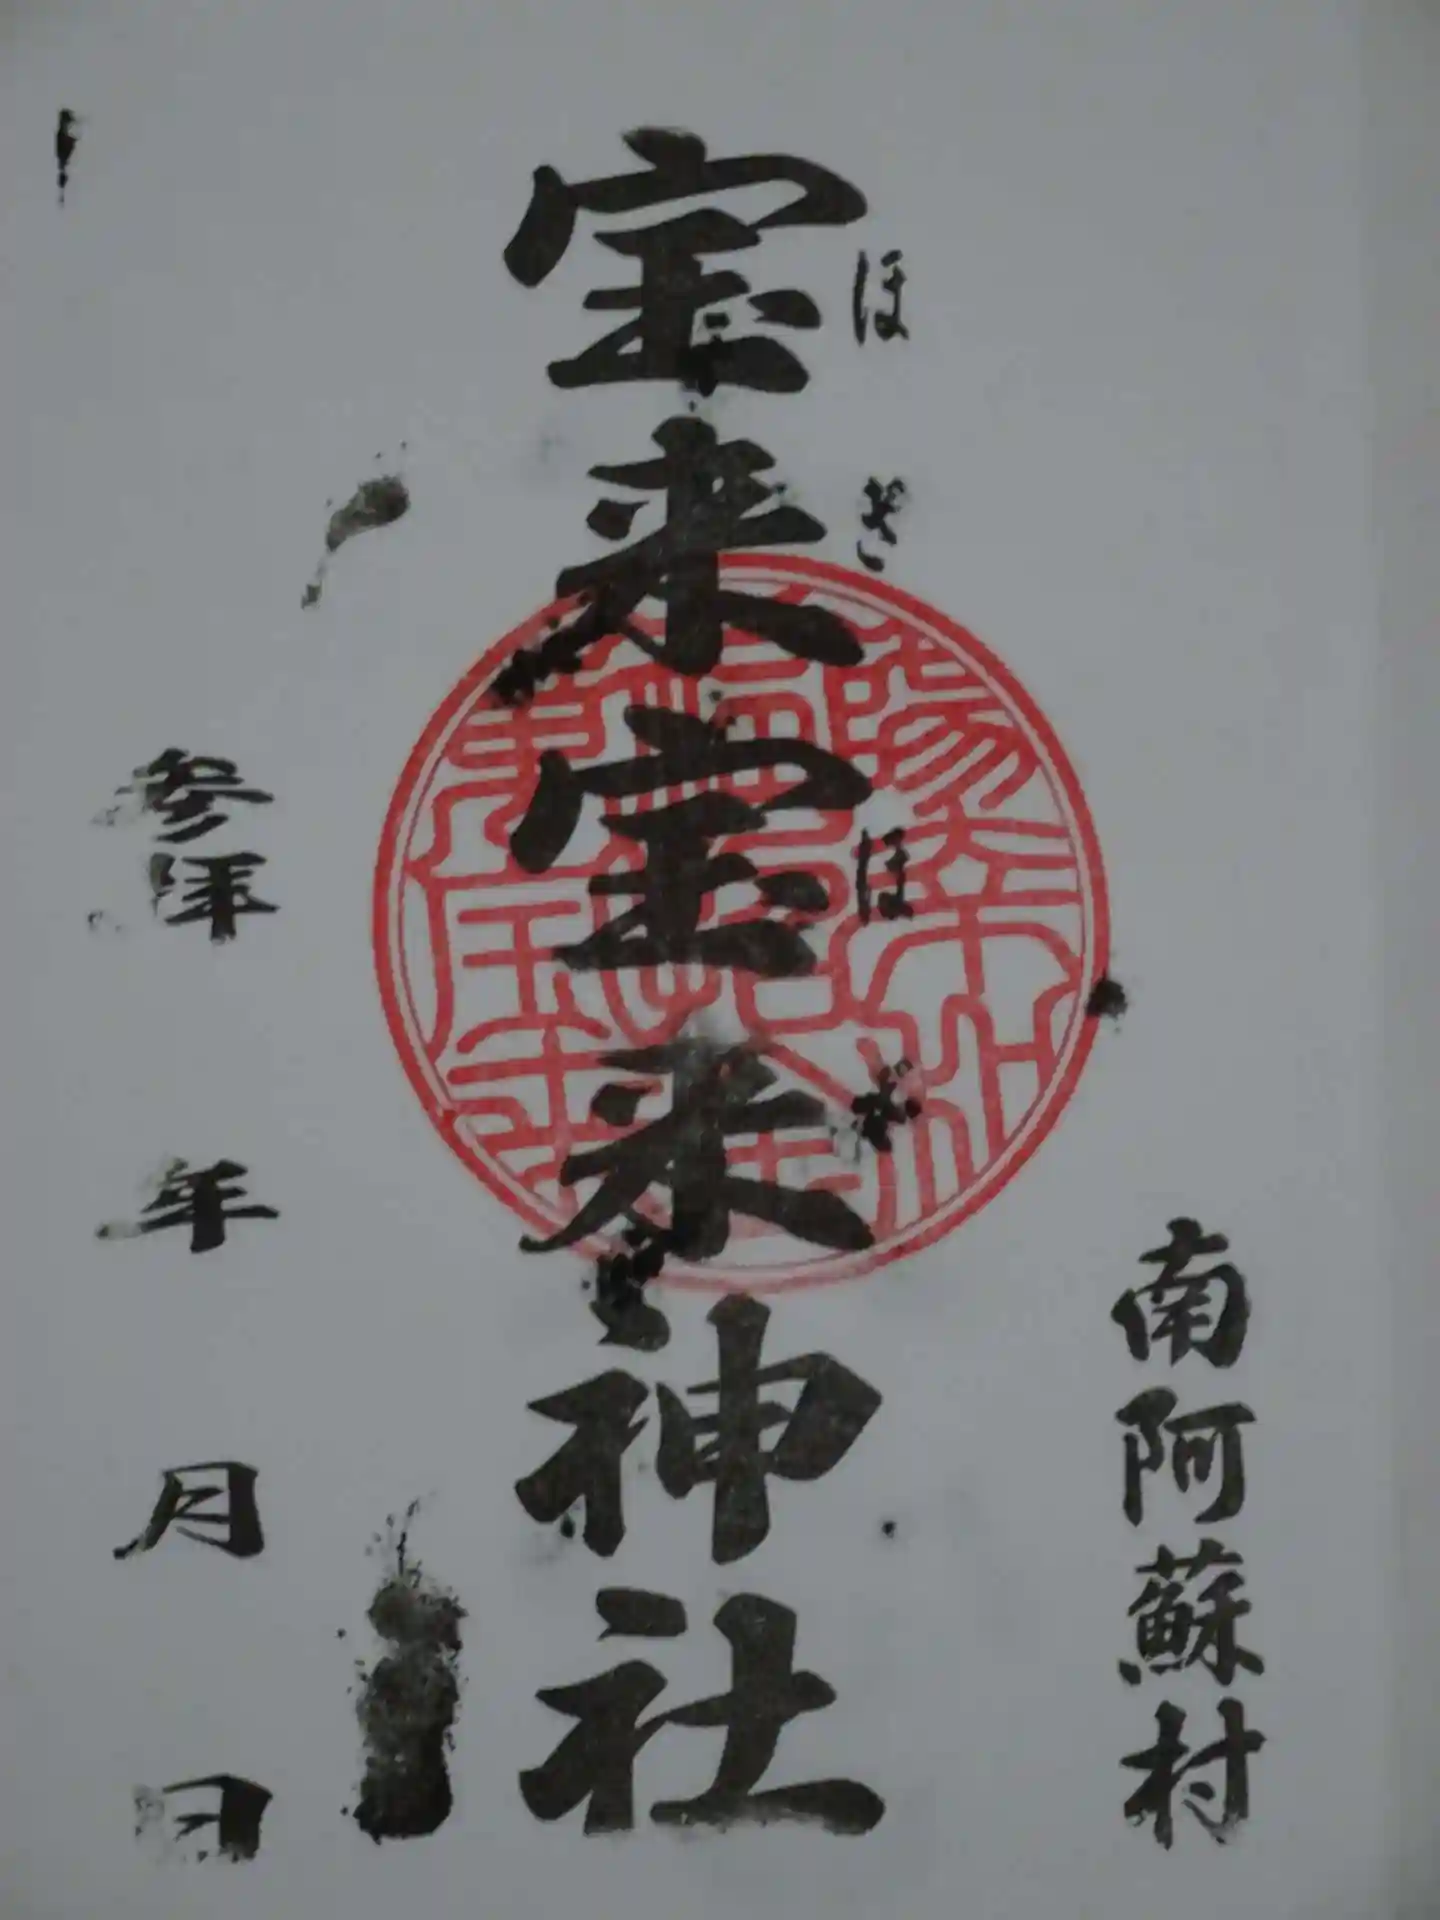 南阿蘇村
宝来宝来神社
ほ ぎ ほ ぎ
参拝 年 月 日